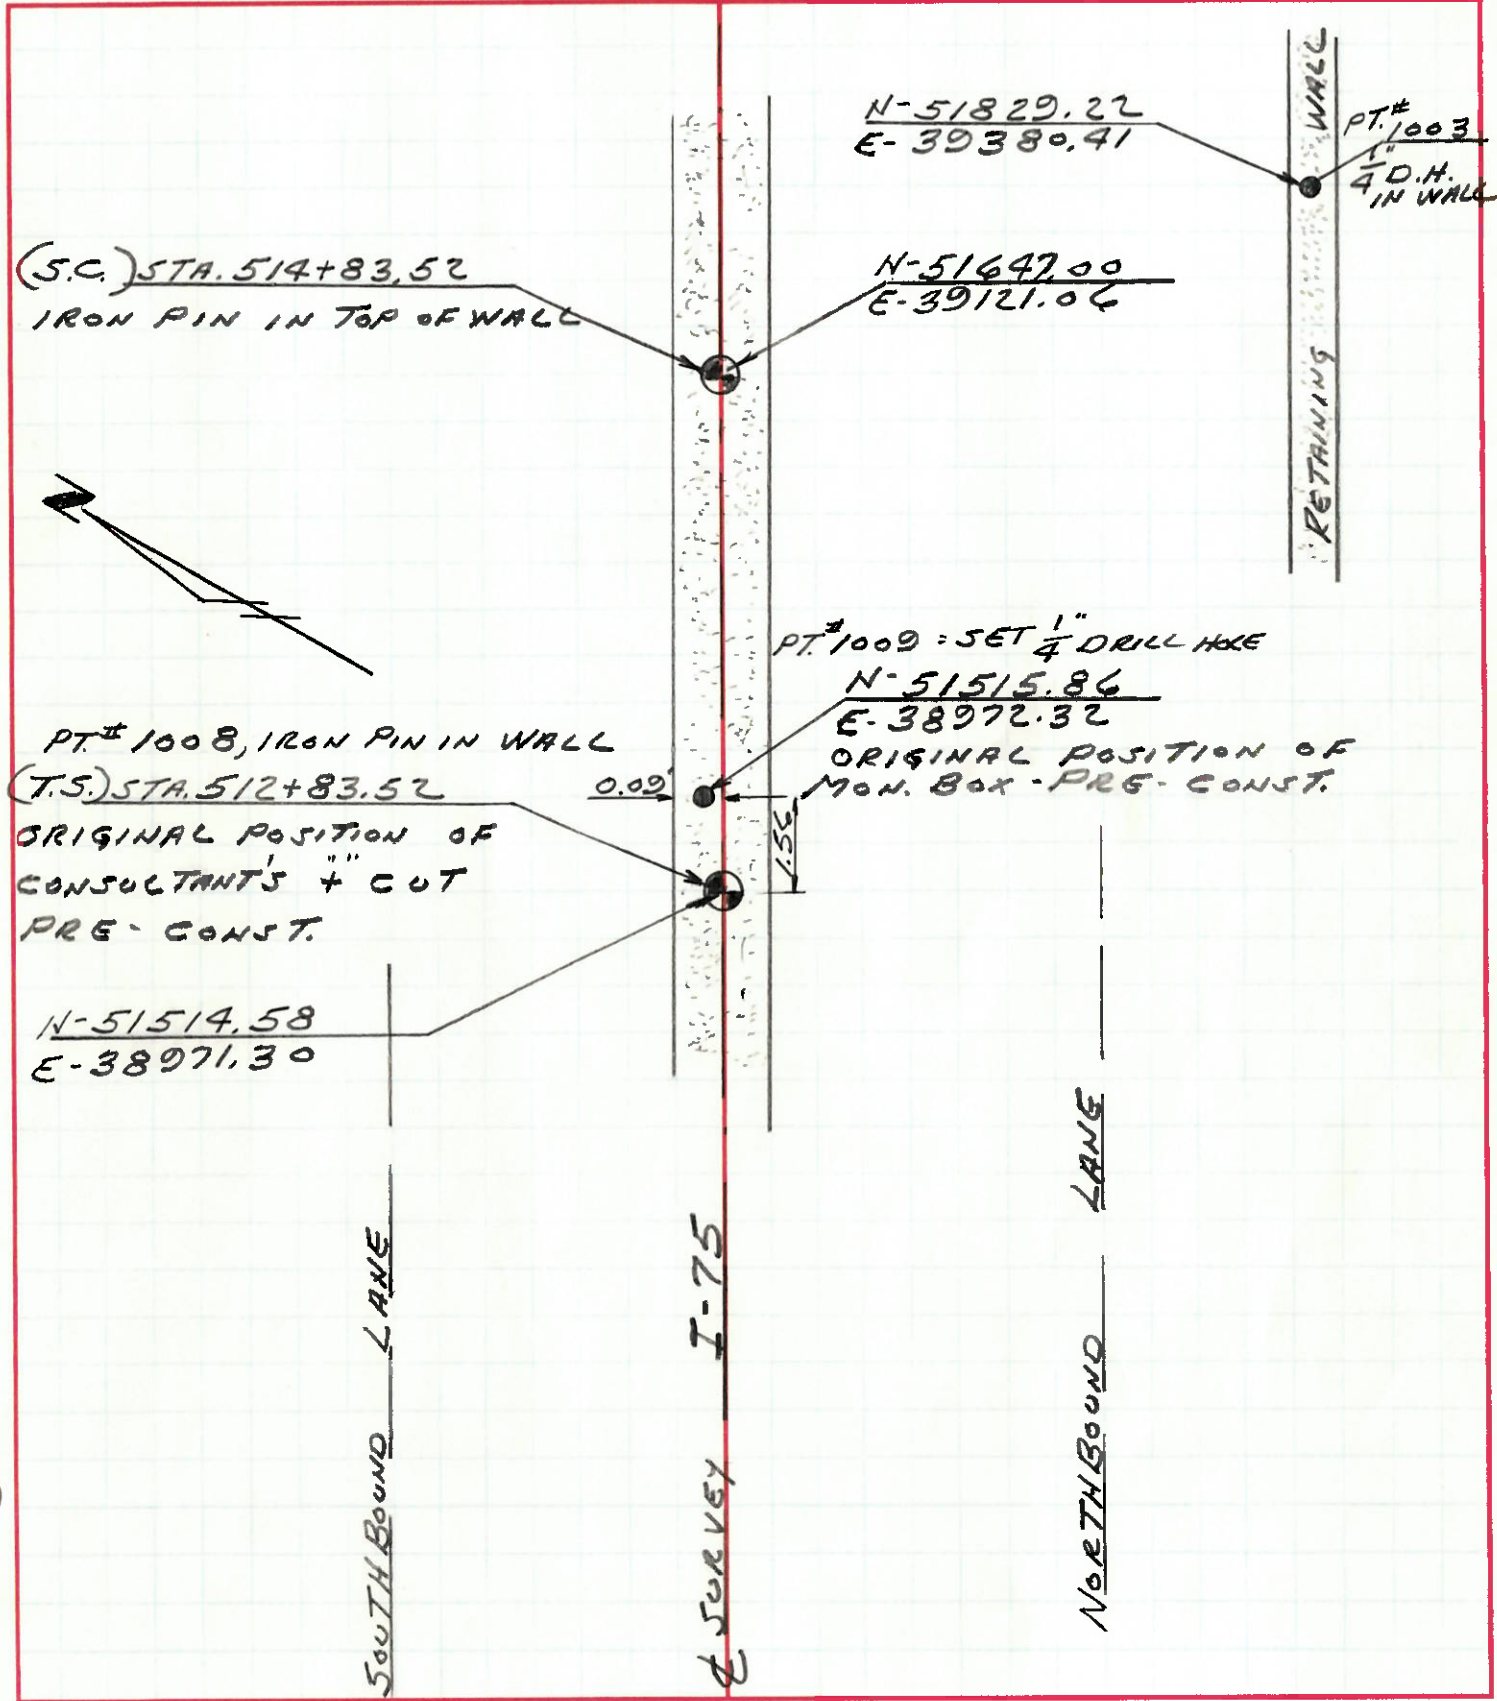 N-51829.22
E-39380.41
PT.# 1003
1/4" D.H.
IN WALL
RETAINING WALL
(S.C.) STA. 514+83.52
IRON PIN IN TOP OF WALL
N-51647.00
E-39121.06
PT.# 1009 = SET 1/4" DRILL HOLE
N-51515.86
E-38972.32
ORIGINAL POSITION OF
MON. BOX - PRE-CONST.
PT.# 1008, IRON PIN IN WALL
(T.S.) STA. 512+83.52
ORIGINAL POSITION OF
CONSULTANT'S "+" CUT
PRE-CONST.
0.09'
1.56
N-51514.58
E-38971.30
SOUTHBOUND LANE
℄ SURVEY I-75
NORTHBOUND LANE